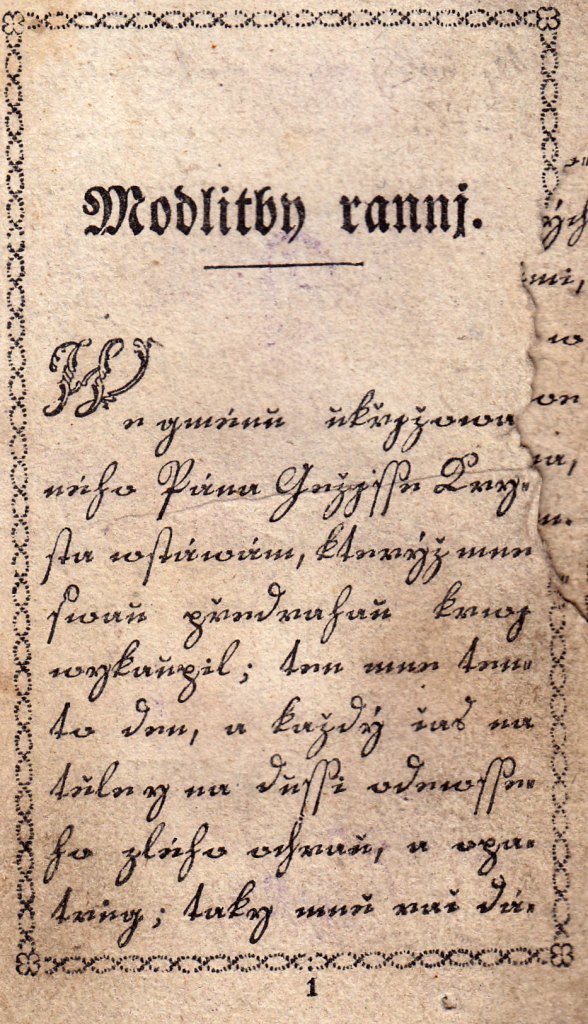 Modlitby rannj.
We gménu ukřyžowa
ného Pána Gežjsse Kry-
sta wstáwám, kterýž mne
swau předrahau krwj
wykaupil; ten mne ten-
to den, a každý čas na
tule y na dussi odewsse-
ho zlého ochraň, a opa-
trug; taky mně rač dá-
1